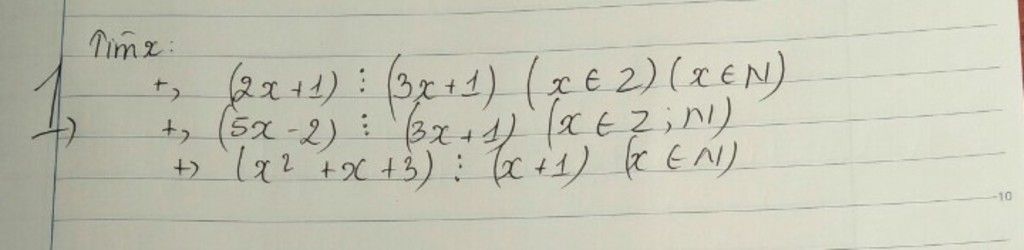 Tìm x:
1) +, (2x+1) ⋮ (3x+1) (x ∈ Z) (x ∈ N)
+, (5x-2) ⋮ (3x+1) (x ∈ Z; N)
+) (x² +x +3) ⋮ (x+1) (x ∈ N)
10